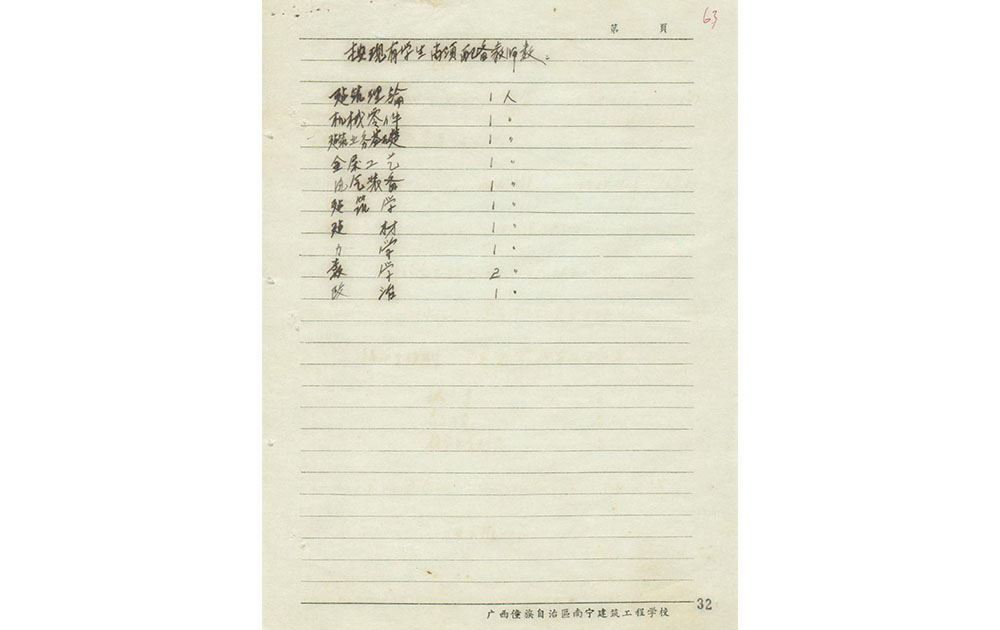 63
第 頁
按现有学生尚须配备教师数：
建筑理論 1人
机械零件 1〃
建筑业务基础 1〃
金属工艺 1〃
电气装备 1〃
建筑学 1〃
建材 1〃
力学 1〃
数学 2〃
政治 1〃
广西僮族自治區南宁建筑工程学校
32